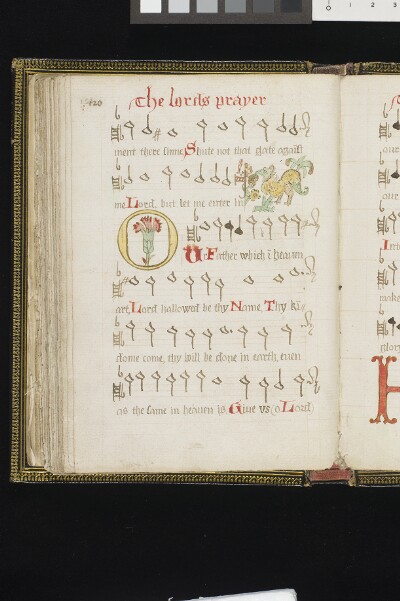 The lords prayer
ment there sinne, Shute not that gate agaīst
me Lord, but let me enter in
Our Father which ī heaven
art, Lord hallowed be thy Name, Thy kī
dome come, thy will be done in earth, even
as the same in heaven is, Giue vs (o Lord)
our
our
make
glory
0 1 2 3